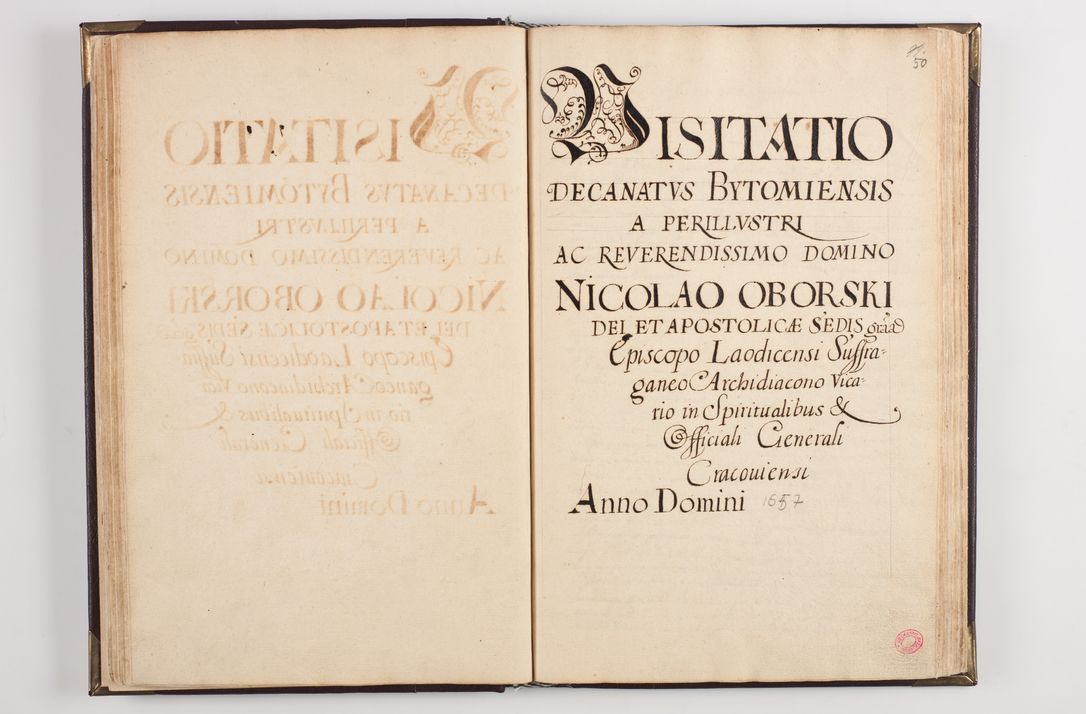 50
VISITATIO
DECANATVS BYTOMIENSIS
A PERILLVSTRI
AC REVERENDISSIMO DOMINO
NICOLAO OBORSKI
DEI ET APOSTOLICÆ SEDIS gratia
Episcopo Laodicensi Suffra-
ganeo Archidiacono Vica-
rio in Spiritualibus &
Officiali Generali
Cracouiensi
Anno Domini 1657